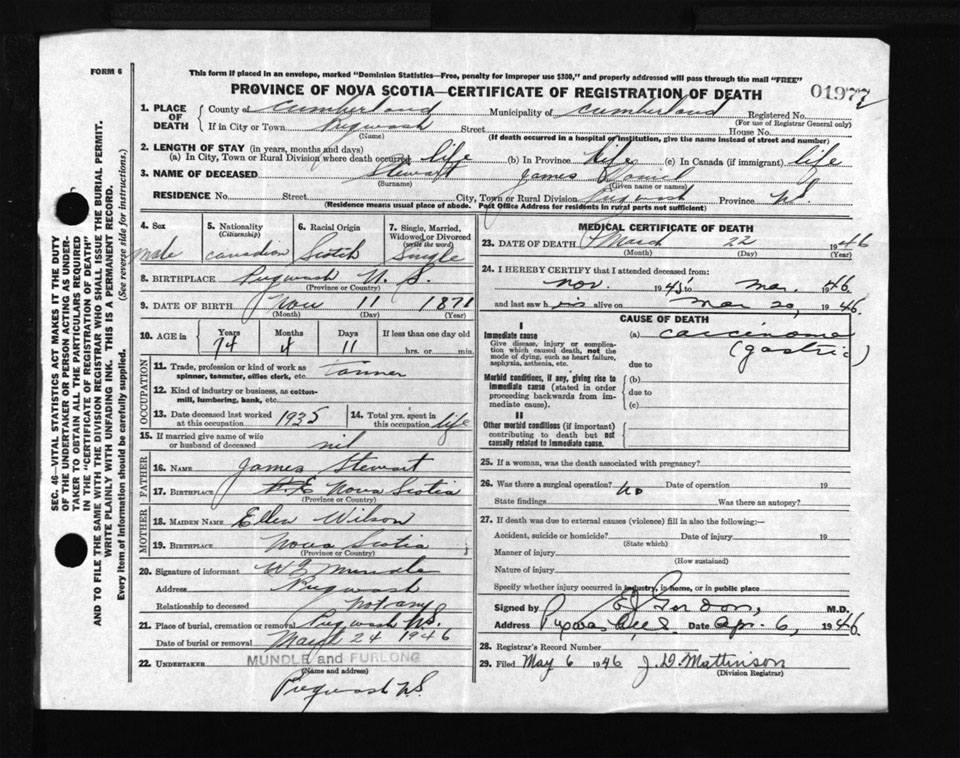 FORM 6
This form if placed in an envelope, marked "Dominion Statistics—Free, penalty for improper use $300," and properly addressed will pass through the mail "FREE"
PROVINCE OF NOVA SCOTIA—CERTIFICATE OF REGISTRATION OF DEATH
01977
1. PLACE OF DEATH
County of Cumberland Municipality of Cumberland Registered No.
(For use of Registrar General only)
If in City or Town Pugwash Street House No.
(Name) (If death occurred in a hospital or institution, give the name instead of street and number)
2. LENGTH OF STAY (in years, months and days)
(a) In City, Town or Rural Division where death occurred life (b) In Province life (c) In Canada (if immigrant) life
3. NAME OF DECEASED Stewart James Daniel
(Surname) (Given name or names)
RESIDENCE No. Street City, Town or Rural Division Pugwash Province N.S.
(Residence means usual place of abode. Post Office Address for residents in rural parts not sufficient)
4. Sex 5. Nationality (Citizenship) 6. Racial Origin 7. Single, Married, Widowed or Divorced (write the word)
male Canadian Scotch Single
8. BIRTHPLACE Pugwash N.S.
(Province or Country)
9. DATE OF BIRTH Nov 11 1871
(Month) (Day) (Year)
10. AGE in Years Months Days If less than one day old
74 4 11 hrs. or min.
OCCUPATION
11. Trade, profession or kind of work as spinner, teamster, office clerk, etc.
12. Kind of industry or business, as cotton-mill, lumbering, bank, etc.
13. Date deceased last worked at this occupation 1935 14. Total yrs. spent in this occupation life
15. If married give name of wife or husband of deceased nil
FATHER
16. NAME James Stewart
17. BIRTHPLACE Nova Scotia
(Province or Country)
MOTHER
18. MAIDEN NAME Ellen Wilson
19. BIRTHPLACE Nova Scotia
(Province or Country)
20. Signature of informant Mundle
Address Pugwash
Relationship to deceased not any
21. Place of burial, cremation or removal Pugwash N.S.
Date of burial or removal 24 1946
22. UNDERTAKER MUNDLE and FURLONG
(Name and address)
Pugwash N.S.
MEDICAL CERTIFICATE OF DEATH
23. DATE OF DEATH March 22 1946
(Month) (Day) (Year)
24. I HEREBY CERTIFY that I attended deceased from:
Nov. 1945 to Mar. 1946
and last saw h alive on Mar 20, 1946
CAUSE OF DEATH
I
Immediate cause (a) carcinoma
Give disease, injury or complication which caused death, not the mode of dying, such as heart failure, asphyxia, asthenia, etc. (gastric)
due to
Morbid conditions, if any, giving rise to immediate cause (stated in order proceeding backwards from immediate cause). (b)
due to
(c)
II
Other morbid conditions (if important) contributing to death but not causally related to immediate cause.
25. If a woman, was the death associated with pregnancy?
26. Was there a surgical operation? No Date of operation 19
State findings Was there an autopsy?
27. If death was due to external causes (violence) fill in also the following:—
Accident, suicide or homicide? Date of injury 19
(State which)
Manner of injury
(How sustained)
Nature of injury
Specify whether injury occurred in industry, in home, or in public place
Signed by Gordon, M.D.
Address Date Apr. 6, 1946
28. Registrar's Record Number
29. Filed May 6 1946 J.D. Mattinson
(Division Registrar)
SEC. 46—VITAL STATISTICS ACT MAKES IT THE DUTY
OF THE UNDERTAKER OR PERSON ACTING AS UNDER-
TAKER TO OBTAIN ALL THE PARTICULARS REQUIRED
IN THE "CERTIFICATE OF REGISTRATION OF DEATH"
AND TO FILE THE SAME WITH THE DIVISION REGISTRAR WHO SHALL ISSUE THE BURIAL PERMIT.
WRITE PLAINLY WITH UNFADING INK. THIS IS A PERMANENT RECORD.
Every item of information should be carefully supplied. (See reverse side for instructions.)